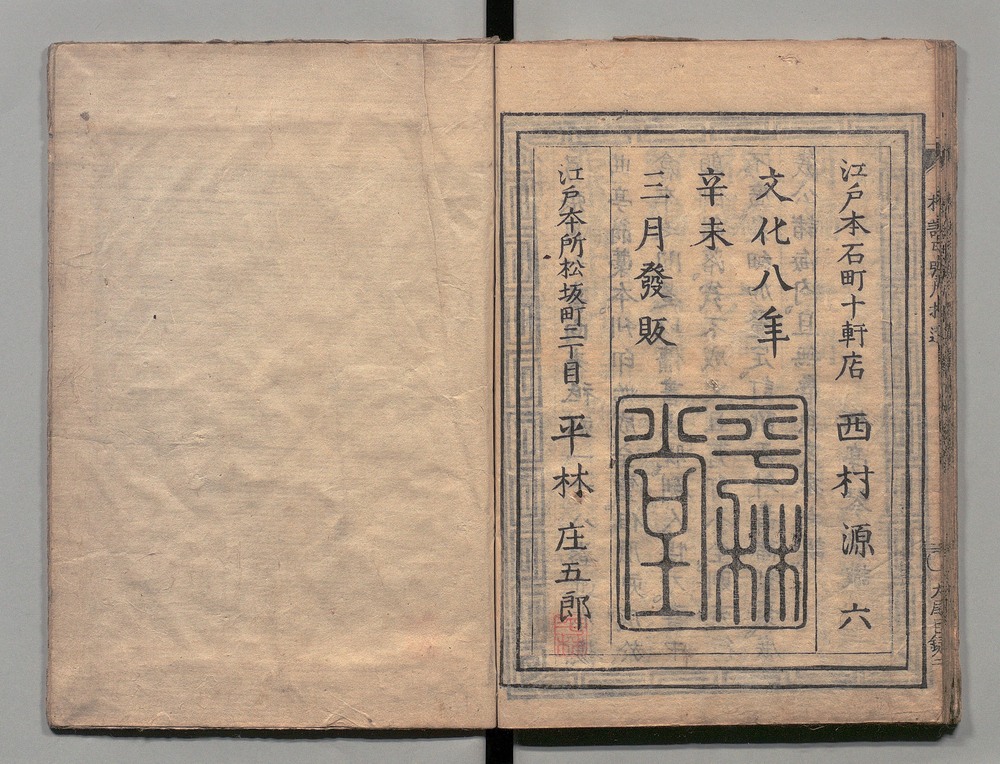 江戸本石町十軒店 西村源六
文化八年
辛未
三月發販
平林堂
江戸本所松坂町二丁目 平林庄五郎